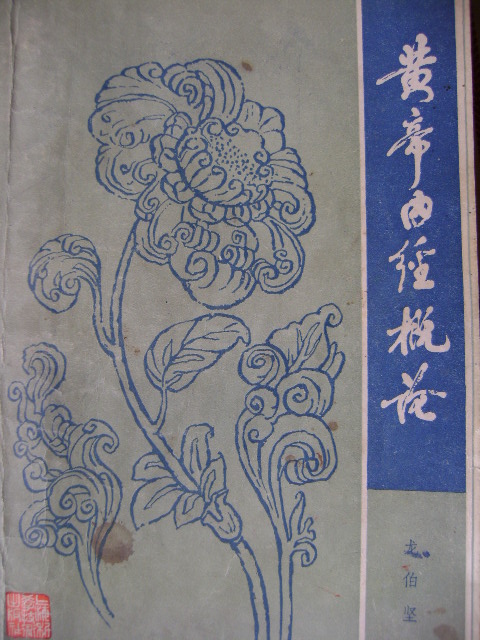 黄帝内经概论
龙伯坚